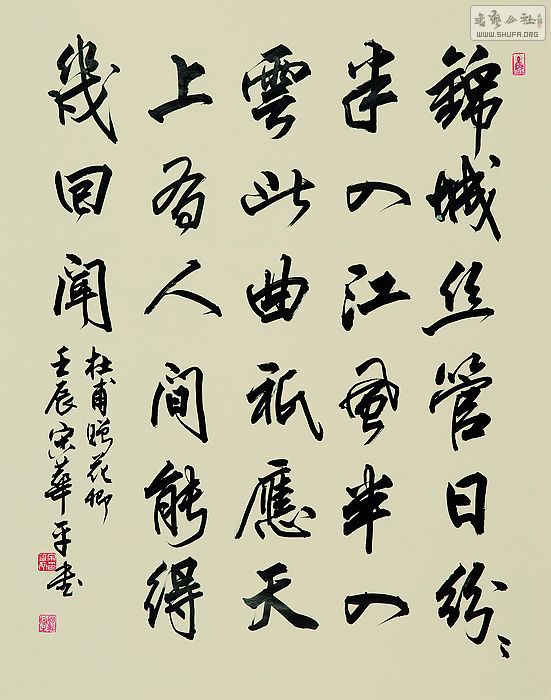 錦城丝管日紛〻
半入江風半入
雲此曲祇應天
上有人間能得
幾回聞
杜甫贈花卿
壬辰宋華平书
書藝公社
WWW.SHUFA.ORG